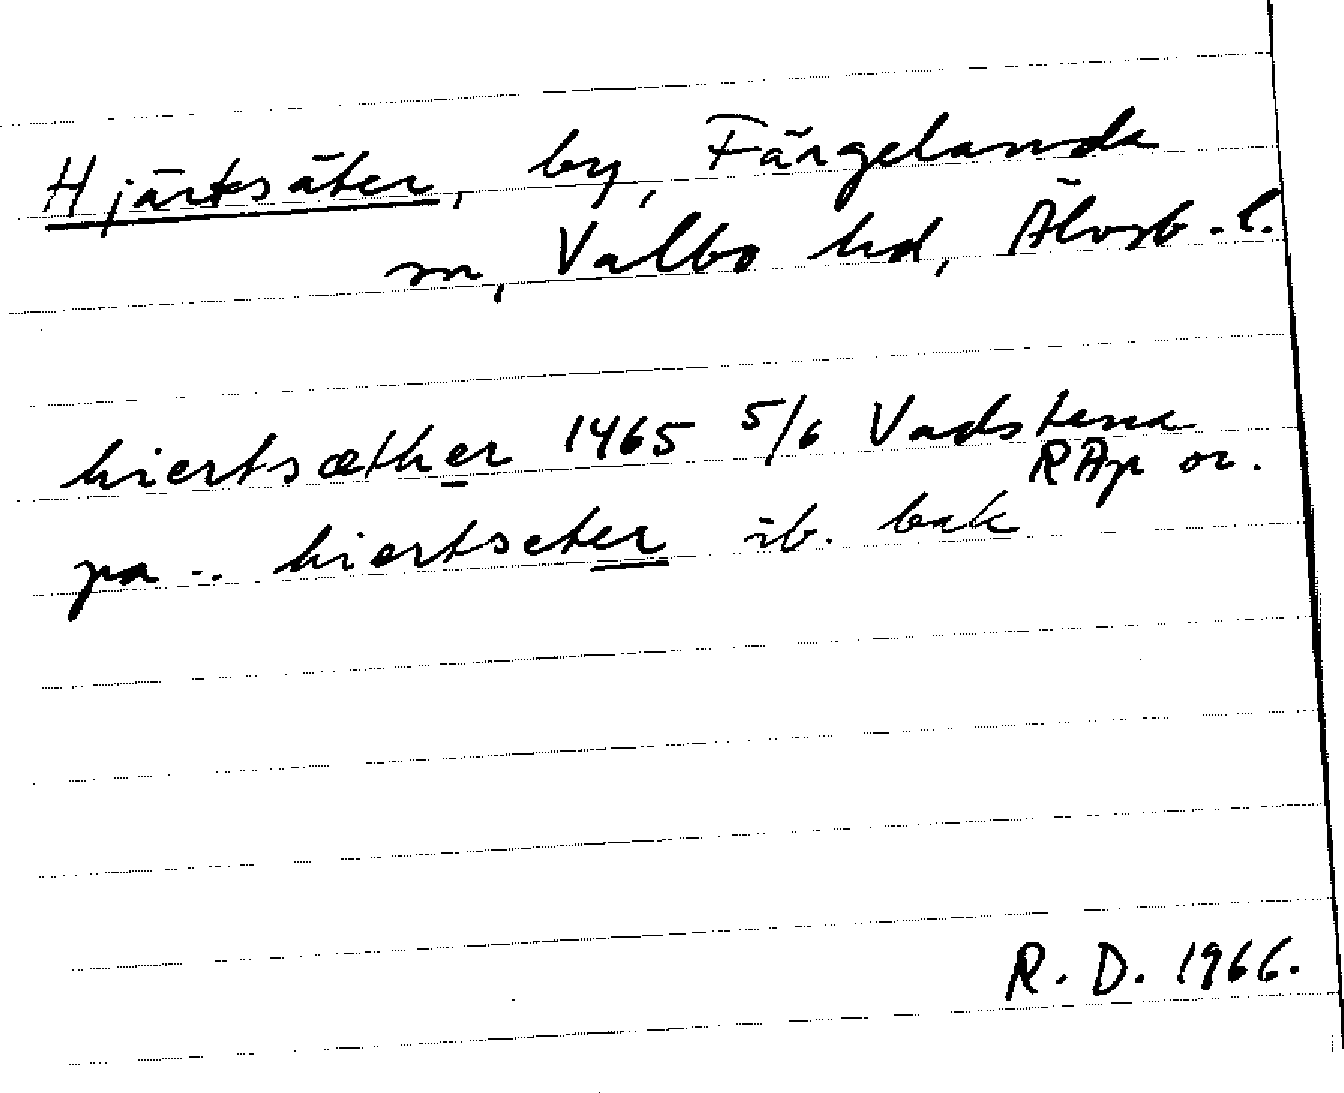 Hjärtsäter, by, Färgelanda
sn, Valbo hd, Älvsb. l.
hiertsæther 1465 5/6 Vadstena
RAp or.
pa .. hiertseter ib. bak
R. D. 1966.